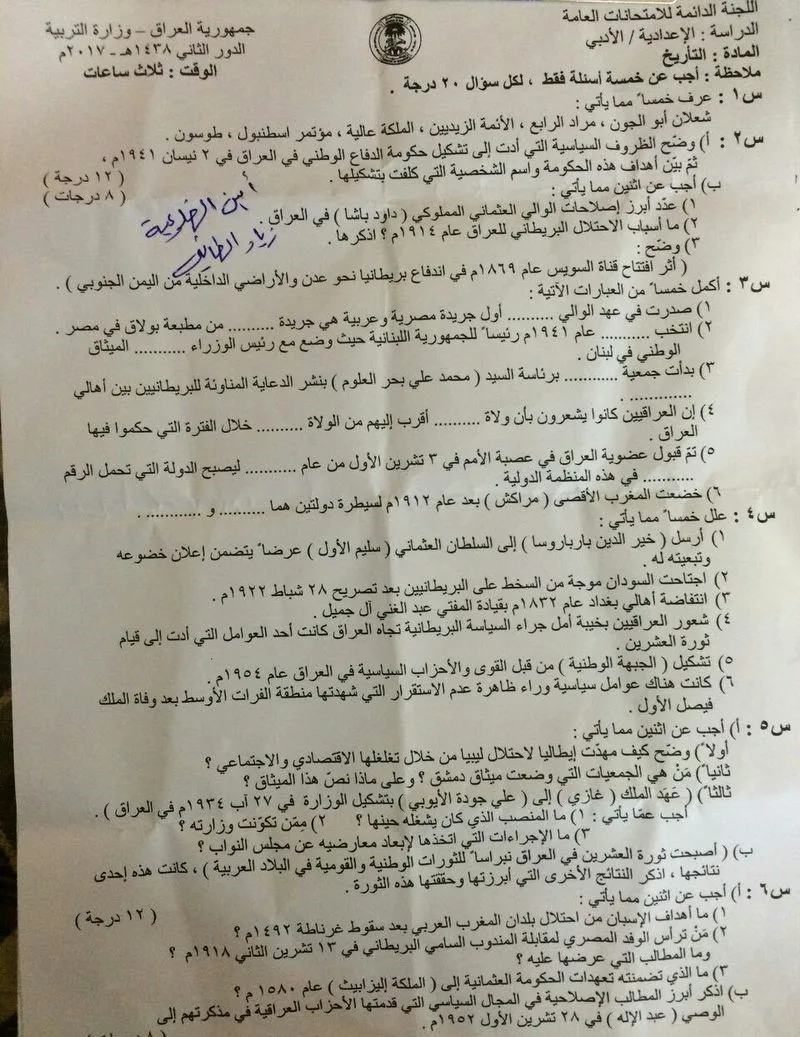 اللجنة الدائمة للامتحانات العامة
الدراسة : الإعدادية / الأدبي
المادة : التأريخ
جمهورية العراق - وزارة التربية
الدور الثاني ١٤٣٨هـ - ٢٠١٧م
الوقت : ثلاث ساعات
ملاحظة : أجب عن خمسة أسئلة فقط ، لكل سؤال ٢٠ درجة .
س١ : عرف خمساً مما يأتي :
شعلان أبو الجون ، مراد الرابع ، الأئمة الزيديين ، الملكة عالية ، مؤتمر اسطنبول ، طوسون .
س٢ : أ) وضّح الظروف السياسية التي أدت إلى تشكيل حكومة الدفاع الوطني في العراق في ٢ نيسان ١٩٤١م ،
ثمّ بيّن أهداف هذه الحكومة واسم الشخصية التي كلفت بتشكيلها . ( ١٢ درجة )
ب) أجب عن اثنين مما يأتي : ( ٨ درجات )
١) عدّد أبرز إصلاحات الوالي العثماني المملوكي ( داود باشا ) في العراق .
٢) ما أسباب الاحتلال البريطاني للعراق عام ١٩١٤م ؟ اذكرها .
٣) وضّح :
( أثر افتتاح قناة السويس عام ١٨٦٩م في اندفاع بريطانيا نحو عدن والأراضي الداخلية من اليمن الجنوبي ) .
زياد الطائي
س٣ : أكمل خمساً من العبارات الآتية :
١) صدرت في عهد الوالي .......... أول جريدة مصرية وعربية هي جريدة .......... من مطبعة بولاق في مصر .
٢) انتخب .......... عام ١٩٤١م رئيساً للجمهورية اللبنانية حيث وضع مع رئيس الوزراء .......... الميثاق
الوطني في لبنان .
٣) بدأت جمعية ............ برئاسة السيد ( محمد علي بحر العلوم ) بنشر الدعاية المناوئة للبريطانيين بين أهالي
............ .
٤) إن العراقيين كانوا يشعرون بأن ولاة .......... أقرب إليهم من الولاة .......... خلال الفترة التي حكموا فيها
العراق .
٥) تمّ قبول عضوية العراق في عصبة الأمم في ٣ تشرين الأول من عام .......... ليصبح الدولة التي تحمل الرقم
.......... في هذه المنظمة الدولية .
٦) خضعت المغرب الأقصى ( مراكش ) بعد عام ١٩١٢م لسيطرة دولتين هما .......... و ............ .
س٤ : علل خمساً مما يأتي :
١) أرسل ( خير الدين بارباروسا ) إلى السلطان العثماني ( سليم الأول ) عرضاً يتضمن إعلان خضوعه
وتبعيته له .
٢) اجتاحت السودان موجة من السخط على البريطانيين بعد تصريح ٢٨ شباط ١٩٢٢م .
٣) انتفاضة أهالي بغداد عام ١٨٣٢م بقيادة المفتي عبد الغني آل جميل .
٤) شعور العراقيين بخيبة أمل جراء السياسة البريطانية تجاه العراق كانت أحد العوامل التي أدت إلى قيام
ثورة العشرين .
٥) تشكيل ( الجبهة الوطنية ) من قبل القوى والأحزاب السياسية في العراق عام ١٩٥٤م .
٦) كانت هناك عوامل سياسية وراء ظاهرة عدم الاستقرار التي شهدتها منطقة الفرات الأوسط بعد وفاة الملك
فيصل الأول .
س٥ : أ) أجب عن اثنين مما يأتي :
أولاً) وضّح كيف مهدّت إيطاليا لاحتلال ليبيا من خلال تغلغلها الاقتصادي والاجتماعي ؟
ثانياً) مَنْ هي الجمعيات التي وضعت ميثاق دمشق ؟ وعلى ماذا نصّ هذا الميثاق ؟
ثالثاً) ( عَهَد الملك ( غازي ) إلى ( علي جودة الأيوبي ) بتشكيل الوزارة في ٢٧ آب ١٩٣٤م في العراق ) .
أجب عمّا يأتي : ١) ما المنصب الذي كان يشغله حينها ؟ ٢) مِمّن تكوّنت وزارته ؟
٣) ما الإجراءات التي اتخذها لإبعاد معارضيه عن مجلس النواب ؟
ب) ( أصبحت ثورة العشرين في العراق نبراساً للثورات الوطنية والقومية في البلاد العربية ) ، كانت هذه إحدى
نتائجها ، اذكر النتائج الأخرى التي أبرزتها وحققتها هذه الثورة .
س٦ : أ) أجب عن اثنين مما يأتي : ( ١٢ درجة )
١) ما أهداف الإسبان من احتلال بلدان المغرب العربي بعد سقوط غرناطة ١٤٩٢م ؟
٢) مَنْ ترأس الوفد المصري لمقابلة المندوب السامي البريطاني في ١٣ تشرين الثاني ١٩١٨م ؟
وما المطالب التي عرضها عليه ؟
٣) ما الذي تضمنته تعهدات الحكومة العثمانية إلى ( الملكة إليزابيث ) عام ١٥٨٠ م ؟
ب) اذكر أبرز المطالب الإصلاحية في المجال السياسي التي قدمتها الأحزاب العراقية في مذكرتهم إلى
الوصي ( عبد الإله ) في ٢٨ تشرين الأول ١٩٥٢م .